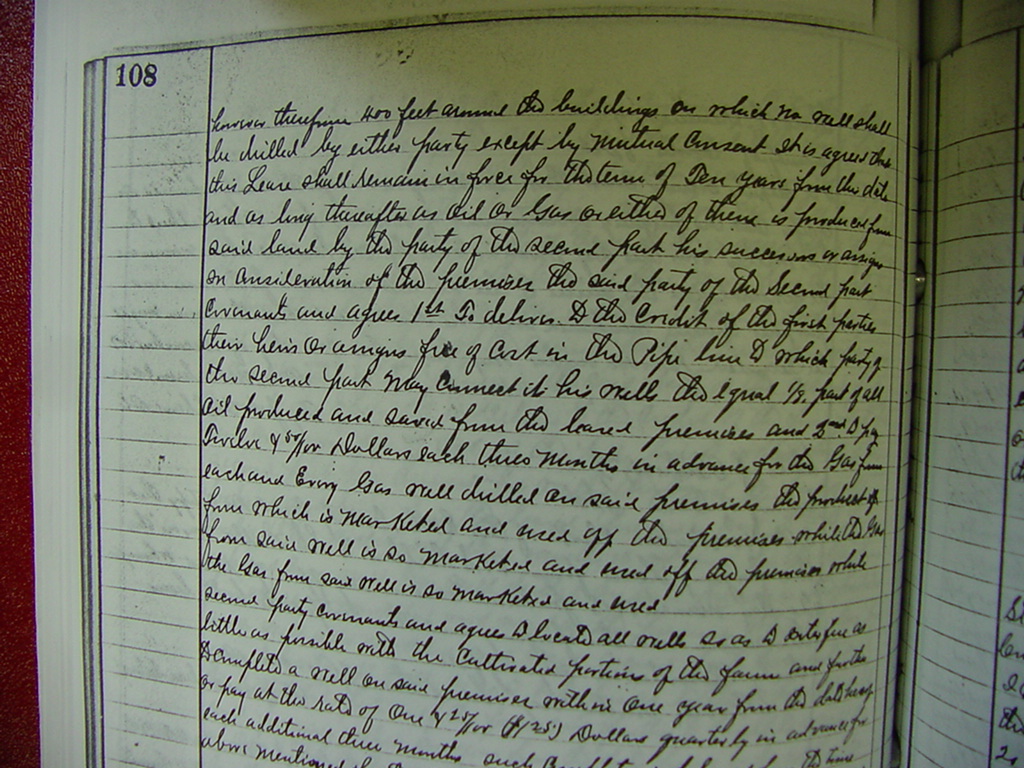 108
however therefrom 400 feet around the buildings on which no well shall
be drilled by either party except by Mutual Consent It is agreed that
this Lease shall remain in force for the term of Ten years from this date
and as long thereafter as Oil or Gas or either of them is produced from
said land by the party of the second part his successors or assigns
In Consideration of the premises the said party of the Second part
Covenants and agrees 1st To deliver to the Credit of the first parties
their heirs or assigns free of Cost in the Pipe line to which party of
the second part May Connect it his wells the equal 1/8 part of all
oil produced and saved from the leased premises and 2nd to pay
Twelve & 50/100 Dollars each three Months in advance for the Gas from
each and Every Gas well drilled on said premises the product
from which is Marketed and used off the premises while the Gas
from said well is so Marketed and used off the premises while
the Gas from said well is so Marketed and used
second party covenants and agrees to locate all wells so as to interfere as
little as possible with the Cultivated portions of the farm and further
to complete a well on said premises within One year from the date hereof
or pay at the rate of One & 25/100 ($1.25) Dollars quarterly in advance for
each additional three Months such
above mentioned the time